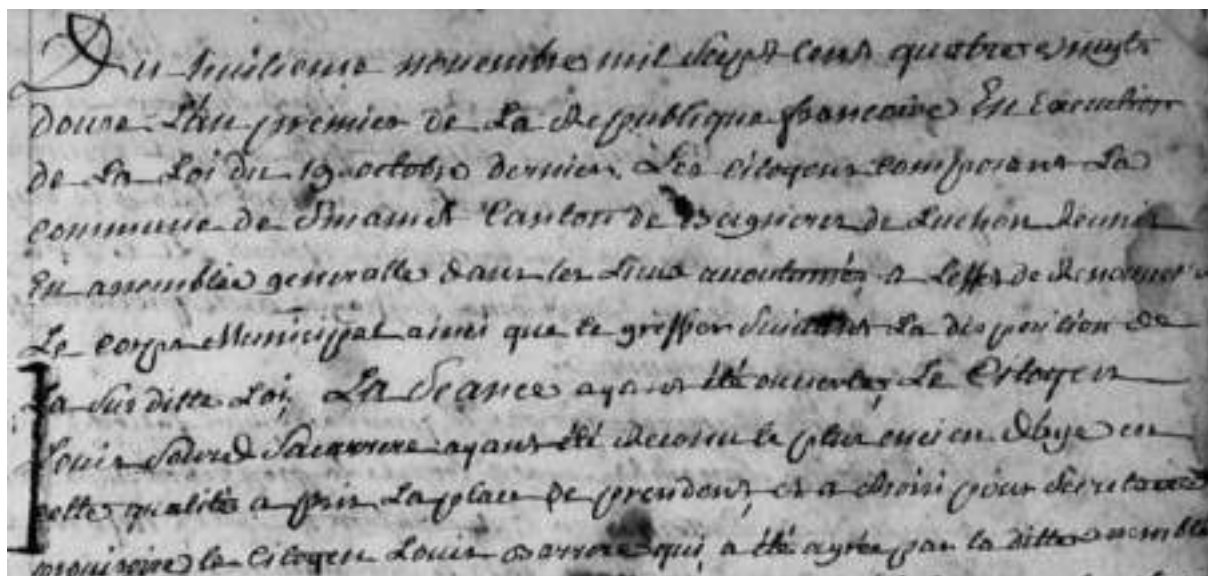 Du huitieme novembre mil sept cens quatre vingts
douse L'an premier de La Republique francoise En Execution
de La Loi du 19 octobre dernier. Les citoyens composant La
commune de St mamet Canton de Bagneres de Luchon Reunis
En assemblée generalle dans les Lieux acoutumés, a Leffet de Renouveller
Le corps Municipal ainsi que le greffier suivant La disposition de
La Sus ditte Loi, La Seance ayant été ouverte, Le Citoyen
Louis Sacarrere ayant été Reconu le plus encien d'age en
cette qualité a pris La place de president, et a choisi pour Secretaire
provisoire le Citoyen Louis Barrere qui, a été agrée par la ditte assemblé